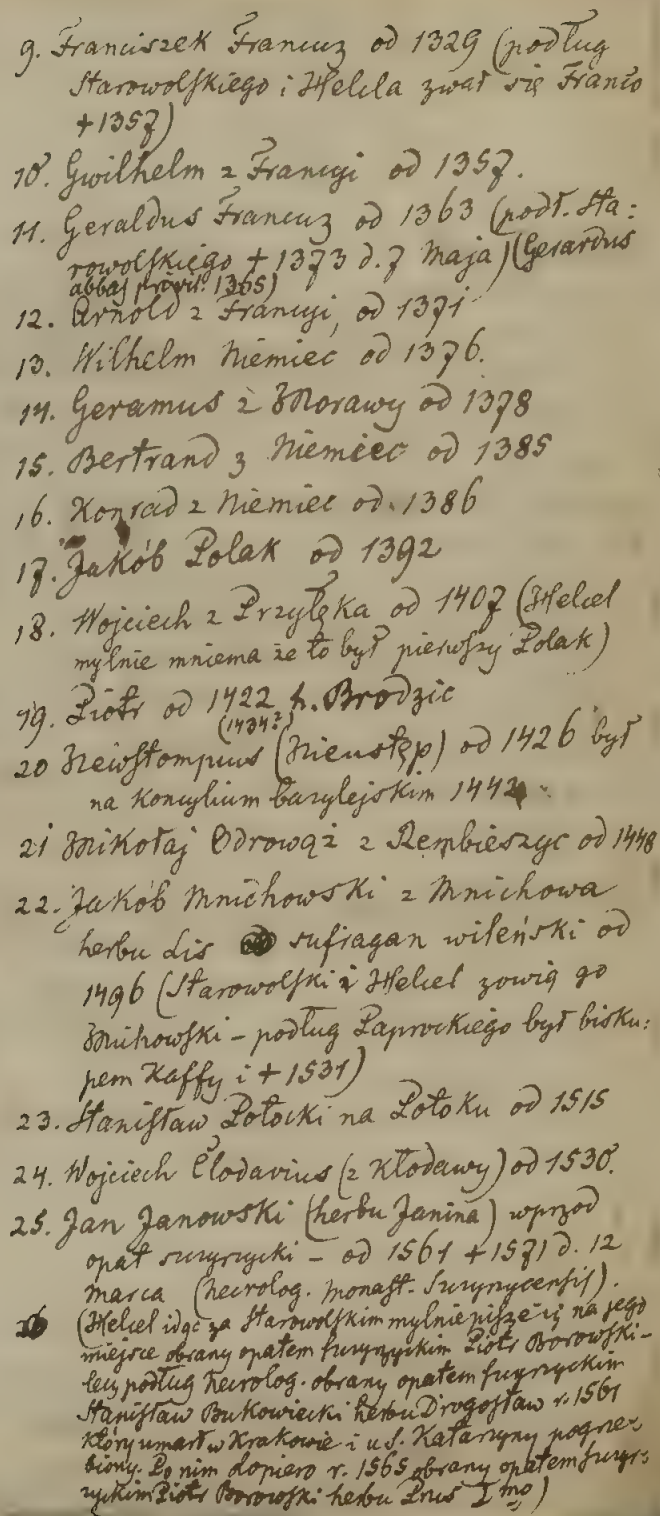 9. Franciszek Francuz od 1329 (podług
Starowolskiego i Helcla zwał się Franco
+ 1357)
10. Gwilhelm z Francyi od 1357.
11. Geraldus Francuz od 1363 (podł. Sta:
rowolskiego + 1373 d. 7 Maja) (Gerardus
abbas 1365)
12. Arnold z Francyi, od 1371
13. Wilhelm Niemiec od 1376.
14. Geramus z Morawy od 1378
15. Bertrand z Niemiec od 1385
16. Konrad z Niemiec od. 1386
17. Jakób Polak od 1392
18. Wojciech z Przyłęka od 1407 (Helcel
mylnie mniema że to był pierwszy Polak)
19. Piotr od 1422 h. Brodzic
(1434?)
20 Newstompius (Nieustęp) od 1426 był
na koncylium bazylejskim 1442
21 Mikołaj Odrowąż z Rembieszyc od 1448
22. Jakób Mnichowski z Mnichowa
herbu Lis sufragan wileński od
1496 (Starowolski i Helcel zowią go
Michowski – podług Paprockiego był bisku:
pem Kaffy i + 1531)
23. Stanisław Potocki na Potoku od 1515
24. Wojciech Clodavius (z Kłodawy) od 1530.
25. Jan Janowski (herbu Janina) wprzod
opat surzyczycki – od 1561 + 1571 d. 12
marca (necrolog. monast.
(Helcel idąc za Starowolskim mylnie pisze iż na jego
miejsce obrany opatem Piotr Borowski –
lecz podług necrolog. obrany opatem
Stanisław Bukowiecki herbu Drogosław r. 1561
który umarł w Krakowie i u S. Katarzyny pogrze:
biony. Po nim dopiero r. 1565 obrany opatem
Piotr Borowski herbu Prus I mo)